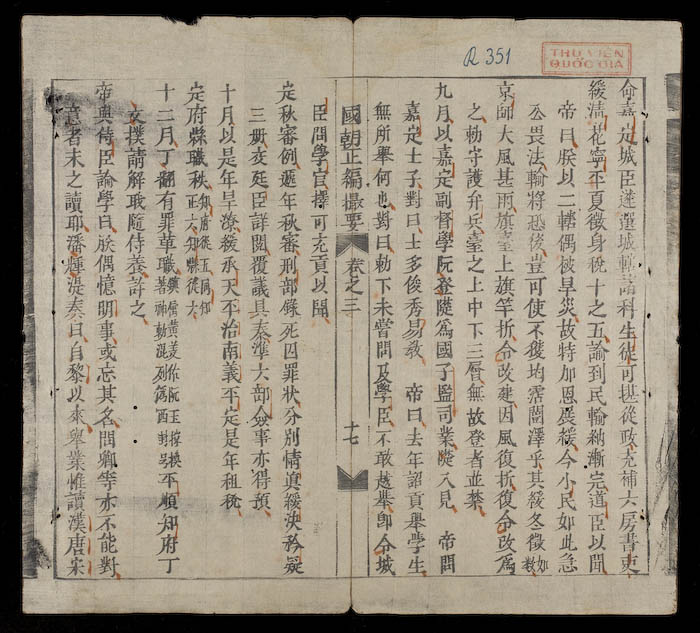 R 351
THƯ VIỆN
QUỐC GIA
命嘉定城臣遴選城轄諸科生徒可堪從政充補六房書吏
緩清花寧平夏徵身稅十之五諭到民輸納漸完道臣以聞
帝曰朕以二轄偶被旱災故特加恩展緩今小民如此急
公畏法輸將恐後豈可使不獲均霑闓澤乎其緩冬徵如數
京師大風甚雨旗臺上旗竿折令改建因風復折復令改為
之勅守護弁兵臺之上中下三層無故登者並禁
九月以嘉定副督學阮登隡為國子監司業隡入見 帝問
嘉定士子對曰士多俊秀易教 帝曰去年詔貢舉學生
無所舉何也對曰勅下未嘗問及學臣不敢越舉卽令城
國朝正編撮要 卷之三 十七
臣問學官擇可充貢以聞
定秋審例遞年秋審刑部錄死囚罪狀分別情眞緩決矜疑
三册交廷臣詳閱覆議具奏準大部僉事亦得預
十月以是年旱潦緩承天平治南義平定是年租稅
定府縣職秩知府從五同知正六知縣從六
十二月丁翻有罪革職平順知府丁
文撲請解職隨侍養許之
帝與侍臣論學曰朕偶憶明事或忘其名問卿等亦不能對
意者未之讀耶潘輝湜奏曰自黎以來舉業惟讀漢唐宋